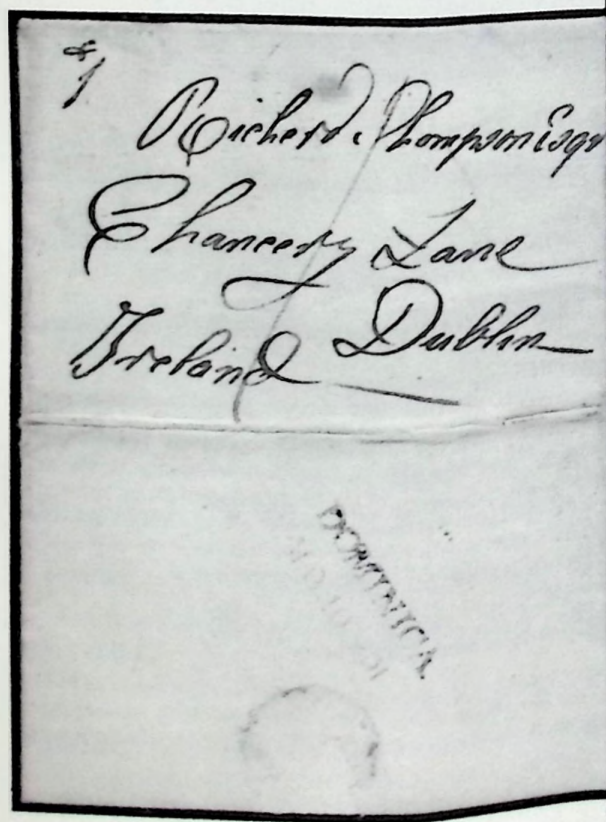 Richard Thompson Esqr
Chancery Lane
Dublin
Ireland
DOMINICA